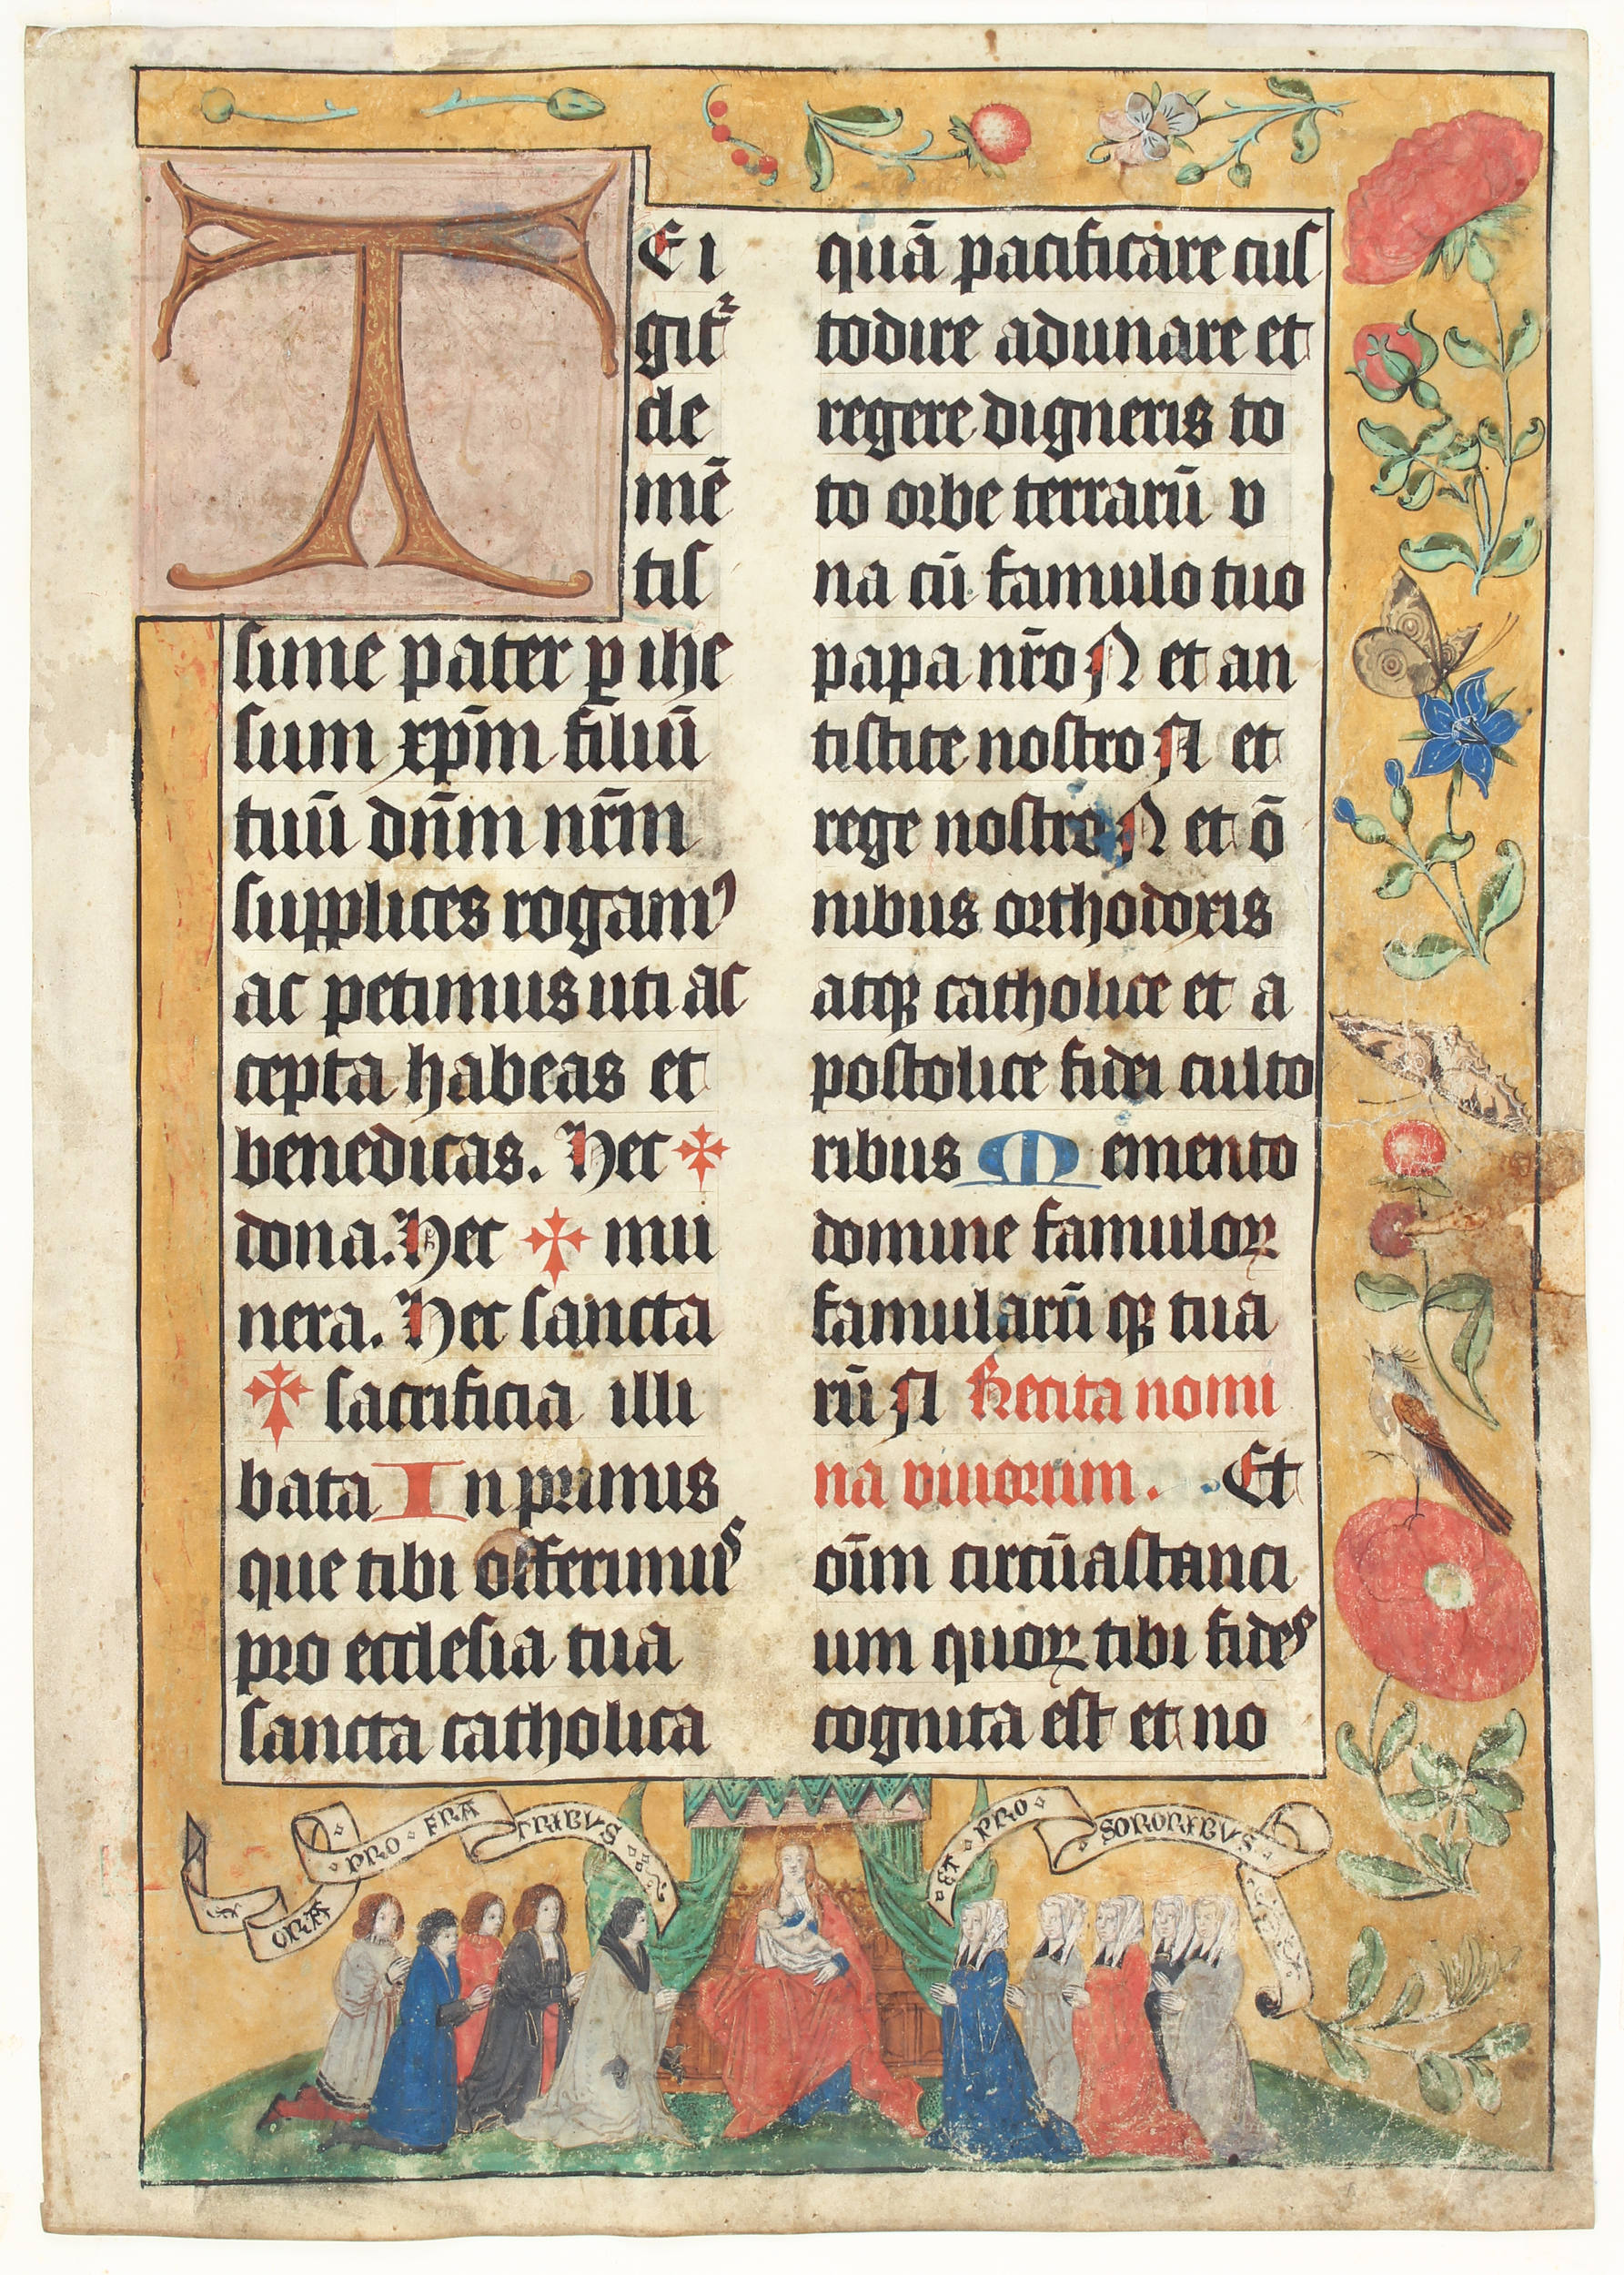 T
E i
gitᷣ
cle
mē
tiſ
ſime pater ꝑ ihe
ſum xp̄m filiū
tuū dn̄m nr̄m
ſupplices rogamꝰ
ac petimus uti ac
cepta habeas et
benedicas. Hec ✠
dona. Hec ✠ mu
nera. Hec ſancta
✠ ſacrificia illi
bata In primis
que tibi offerimus
pro eccleſia tua
ſancta catholica
quā pacificare cuſ
todire adunare et
regere digneris to
to orbe terrarū v
na cū famulo tuo
papa nr̄o N et an
tiſtite noſtro N et
rege noſtro N et ō
nibus orthodoxis
atqꝫ catholice et a
poſtolice fidei culto
ribus Memento
domine famuloꝝ
famularū qꝫ tua
rū N Recita nomi
na viuorum. Et
oīm circūaſtanci
um quoꝝ tibi fides
cognita eſt et no
ORA PRO FRATRIBVS
ET PRO SORORIBVS